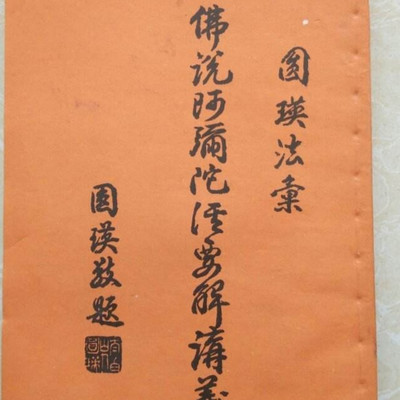 圆瑛法彙
佛說阿彌陀經要解講義
圆瑛敬題